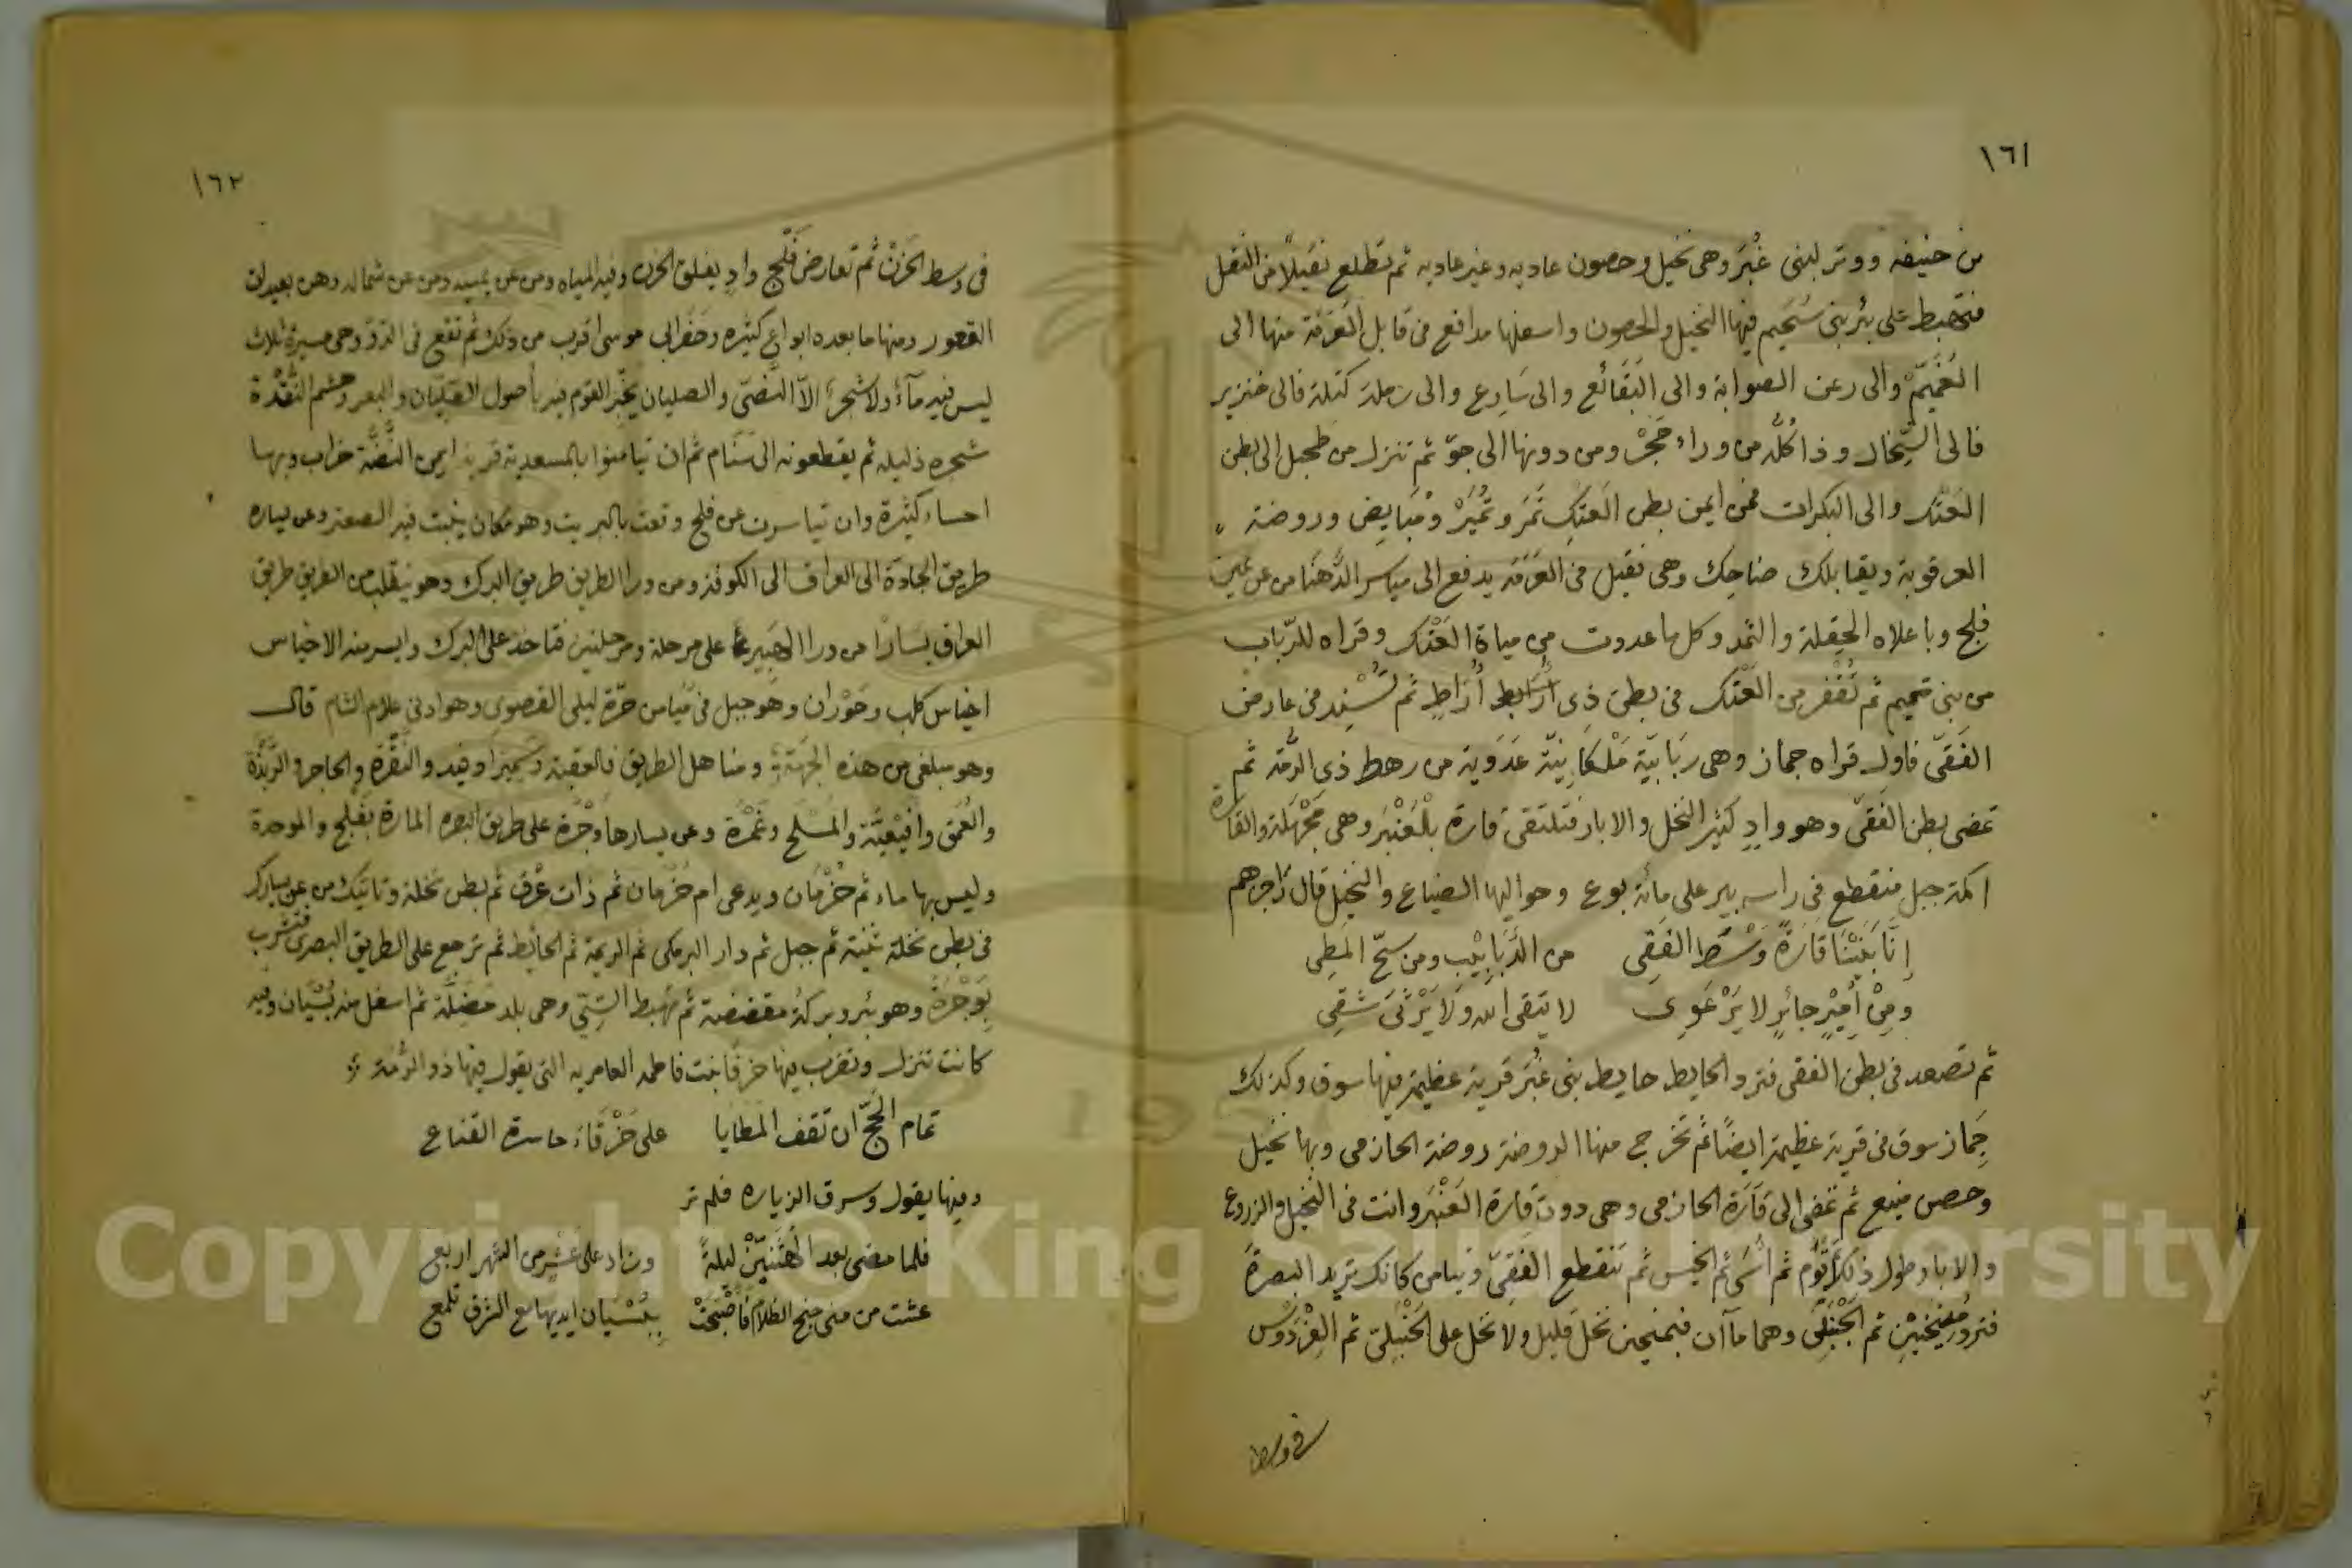 ١٦١
من حنيفه ووتر لبنى غُبَر وهى نخيل وحصون عاديه وغير عاديه ثم تطلع نقيلًا من النقل
فتهبط على بئر بنى سُحَيم فيها النخيل والحصون واسفلها مدافع فى قابل العَرَمَة منها الى
الغُمَيِّم والى رعن الصوابة والى البَقَائع والى سَارِع والى رملة كتلة فالى خنزير
فالى السِّخال وذا كُلُّه من وراء حَجْر ومن دونها الى جوّ ثم تنزل من طحبل الى بطن
العَتْك والى البكرات فمن ايمن بطن العَتْكِ ثَمَر وثُمَيْر ومُبَايِض وروضة
العرقوبة ويقابلك ضاحِك وهى نقيل فى العَرَمَة يدفع الى مياسر الدَّهنَا من عن يمين
فلج وباعلاه الحِقلة والثمد وكل ما عددت من مياة العَتْك وقراه للرّباب
من بنى تميم ثم تُقْفِر من العَتْك فى بطن ذى أُرَاط ثم تُسْنِد فى عارض
الفَقىّ فاول قراه جماز وهى ربَابيّة مَلْكَانِيّة عَدَوية من رهط ذى الرُّمّة ثم
تمضى بطن الفقىّ وهو وادٍ كثير النخل والابار فتلتقى قارة بلْعَنْبَر وهى مَجْهَلَة والقارة
اكمة جبل منقطع فى راسه بير على مائة بوع وحواليها الضياع والنخيل قال راجزهم
إنَّا بَنَيْنَا قَارَةً وَسْطَ الفَقِى من الدَّبَابِيْبِ ومن سَحّ المَطِى
ومِنْ أَمِيْرٍ جائرٍ لا يَرْعَوِى لا يتقى الله ولا يَرْثَى شَقِى
ثم تصعد فى بطن الفقى فترد الحايط حايط بنى غُبَر قرية عظيمة فيها سوق وكذلك
جَماز سوق فى قرية عظيمة ايضًا ثم تخرج منها الروضة روضة الحازمى وبها نخيل
وحصن منيع ثم تمضى الى قَارَة الحازمى وهى دون قارة العَنْبَر وانت فى النخيل والزروع
والابار طول ذلك ثم تُؤَم ثم أُشَى ثم الخيس ثم تنقطع الفَقِىّ وتيامن كانك تريد البصرة
فترد مُنيْخيْنِ ثم الحُنْبَلِى وهما ماآن فبمنيخين نخل قليل ولا نخل على الحُنْبَلِى ثم الفِرْدَوْس
فى وسط
١٦٢
فى وسط الحَزْن ثم تعارض فَلْج وادٍ يفلق الحزن وفيه المياه ومن عن يمينه ومن عن شماله وهن بعيدات
القعور ومنها ما بعده ابواع كثيره وحَفَر ابى موسى اقرب من ذلك ثم تقع فى الدوّ وهى مسيرة ثلاث
ليس فيه مآء ولا شجرة الاّ النَّصِىّ والصليان يخبّز القوم فيه بأصول الصّلِيّان والبعر وهشم النُّقْدة
شجره ذليله ثم يقطعونه الى سَنَام ثم ان تيامنوا بالمسعدية قرية ايمن النضّة خراب وبها
احساء كثيرة وان تياسرت عن فلج وقعت بالبريت وهو مكان ينبت فيه الصعتر وعن يساره
طريق الجادة الى العراق الى الكوفة ومن ورا الطريق طريق البرك وهو ينقلب من الطريق طريق
العراق يسارًا من ورا الهَبِير على مرحلة ومرحلتين فتاخذ على البرك وايسر منه الاخباس
اخباس كلب وحَوْران وهو جبل فى ميامن حَرّة ليلى القصوى وهو ادنى علام الشام قال
وهو مبلغى من هذه الجهة ومناهل الطريق فالعقبة وسَمِيرا وفيد والنَقْرة والحاجر والرَّبَذَة
والعُمَق وافيْعيّة والمَسْلَح وغَمْرَة وعن يسارها وَجْرَة على طريق البصره المارة بفَلج والموحدة
وليس بها ماء ثم خُرْمَان ويدعى ام خُرْمان ثم ذات عِرْق ثم بطن نخلة وتاتيك من عن يسارك
فى بطن نخلة ثنية ثم جبل ثم دار البرمكى ثم الريمة ثم الحائط ثم ترجع على الطريق البصرى فتشرب
بِوَجْرَة وهو بئر وبركة مقضضة ثم تهبط السِّىّ وهى بلد مَضِلَّة ثم اسفل منه بُسْيَان وفيه
كانت تنزل وتقرب فيها خرقا بنت فاطمه العامريه التى يقول فيها ذو الرُّمّة
تمام الحَجّ ان تقف المطايا على خَرْقَاءَ حاسرة القناع
وفيها يقول وسرق الزياره فلم تر
فلما مضى بعد المُثَنِيّنْ ليلةً وزاد على عَشْرٍ من الشهر اربع
عشت من منى جنح الظلام فأصْبَحَتْ بِبُسْيَان ايديها مع الشرق تلمع
Copyright © King Saud University
1957